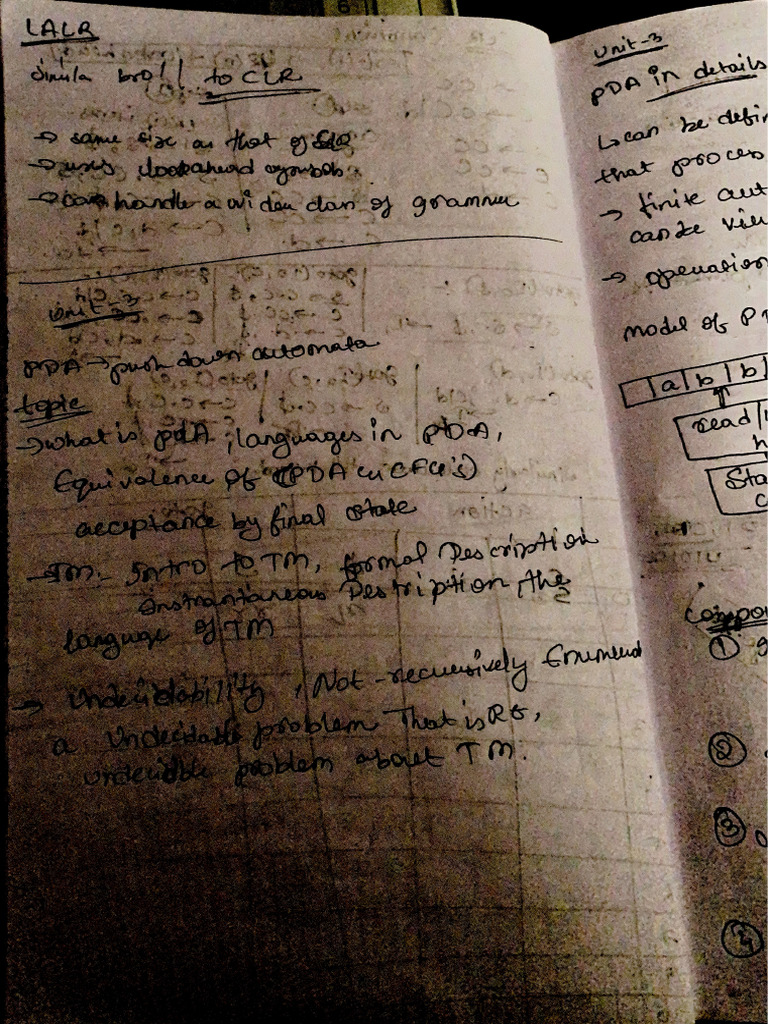 LALR
to CLR
→ same size as that of
→ uses lookahead symbols
→ can handle a wider class of grammer
Unit-3
PDA → push down automata
topic
→ what is pdA, languages in PDA,
Equivalence of (PDA CFG's)
acceptance by final state
→ TM:- Intro to TM, formal Description
Instantaneous Description, the
language of TM
→ Undecidability, Not-recursively Enumerd
a Undecidable problem That is RE,
undecidable problem about TM.
Unit-3
PDA in details
↳ can be defin
that proces
→ finite aut
can be view
→ operation
model of P
a b b
read/
Sta
Compo
①
②
③